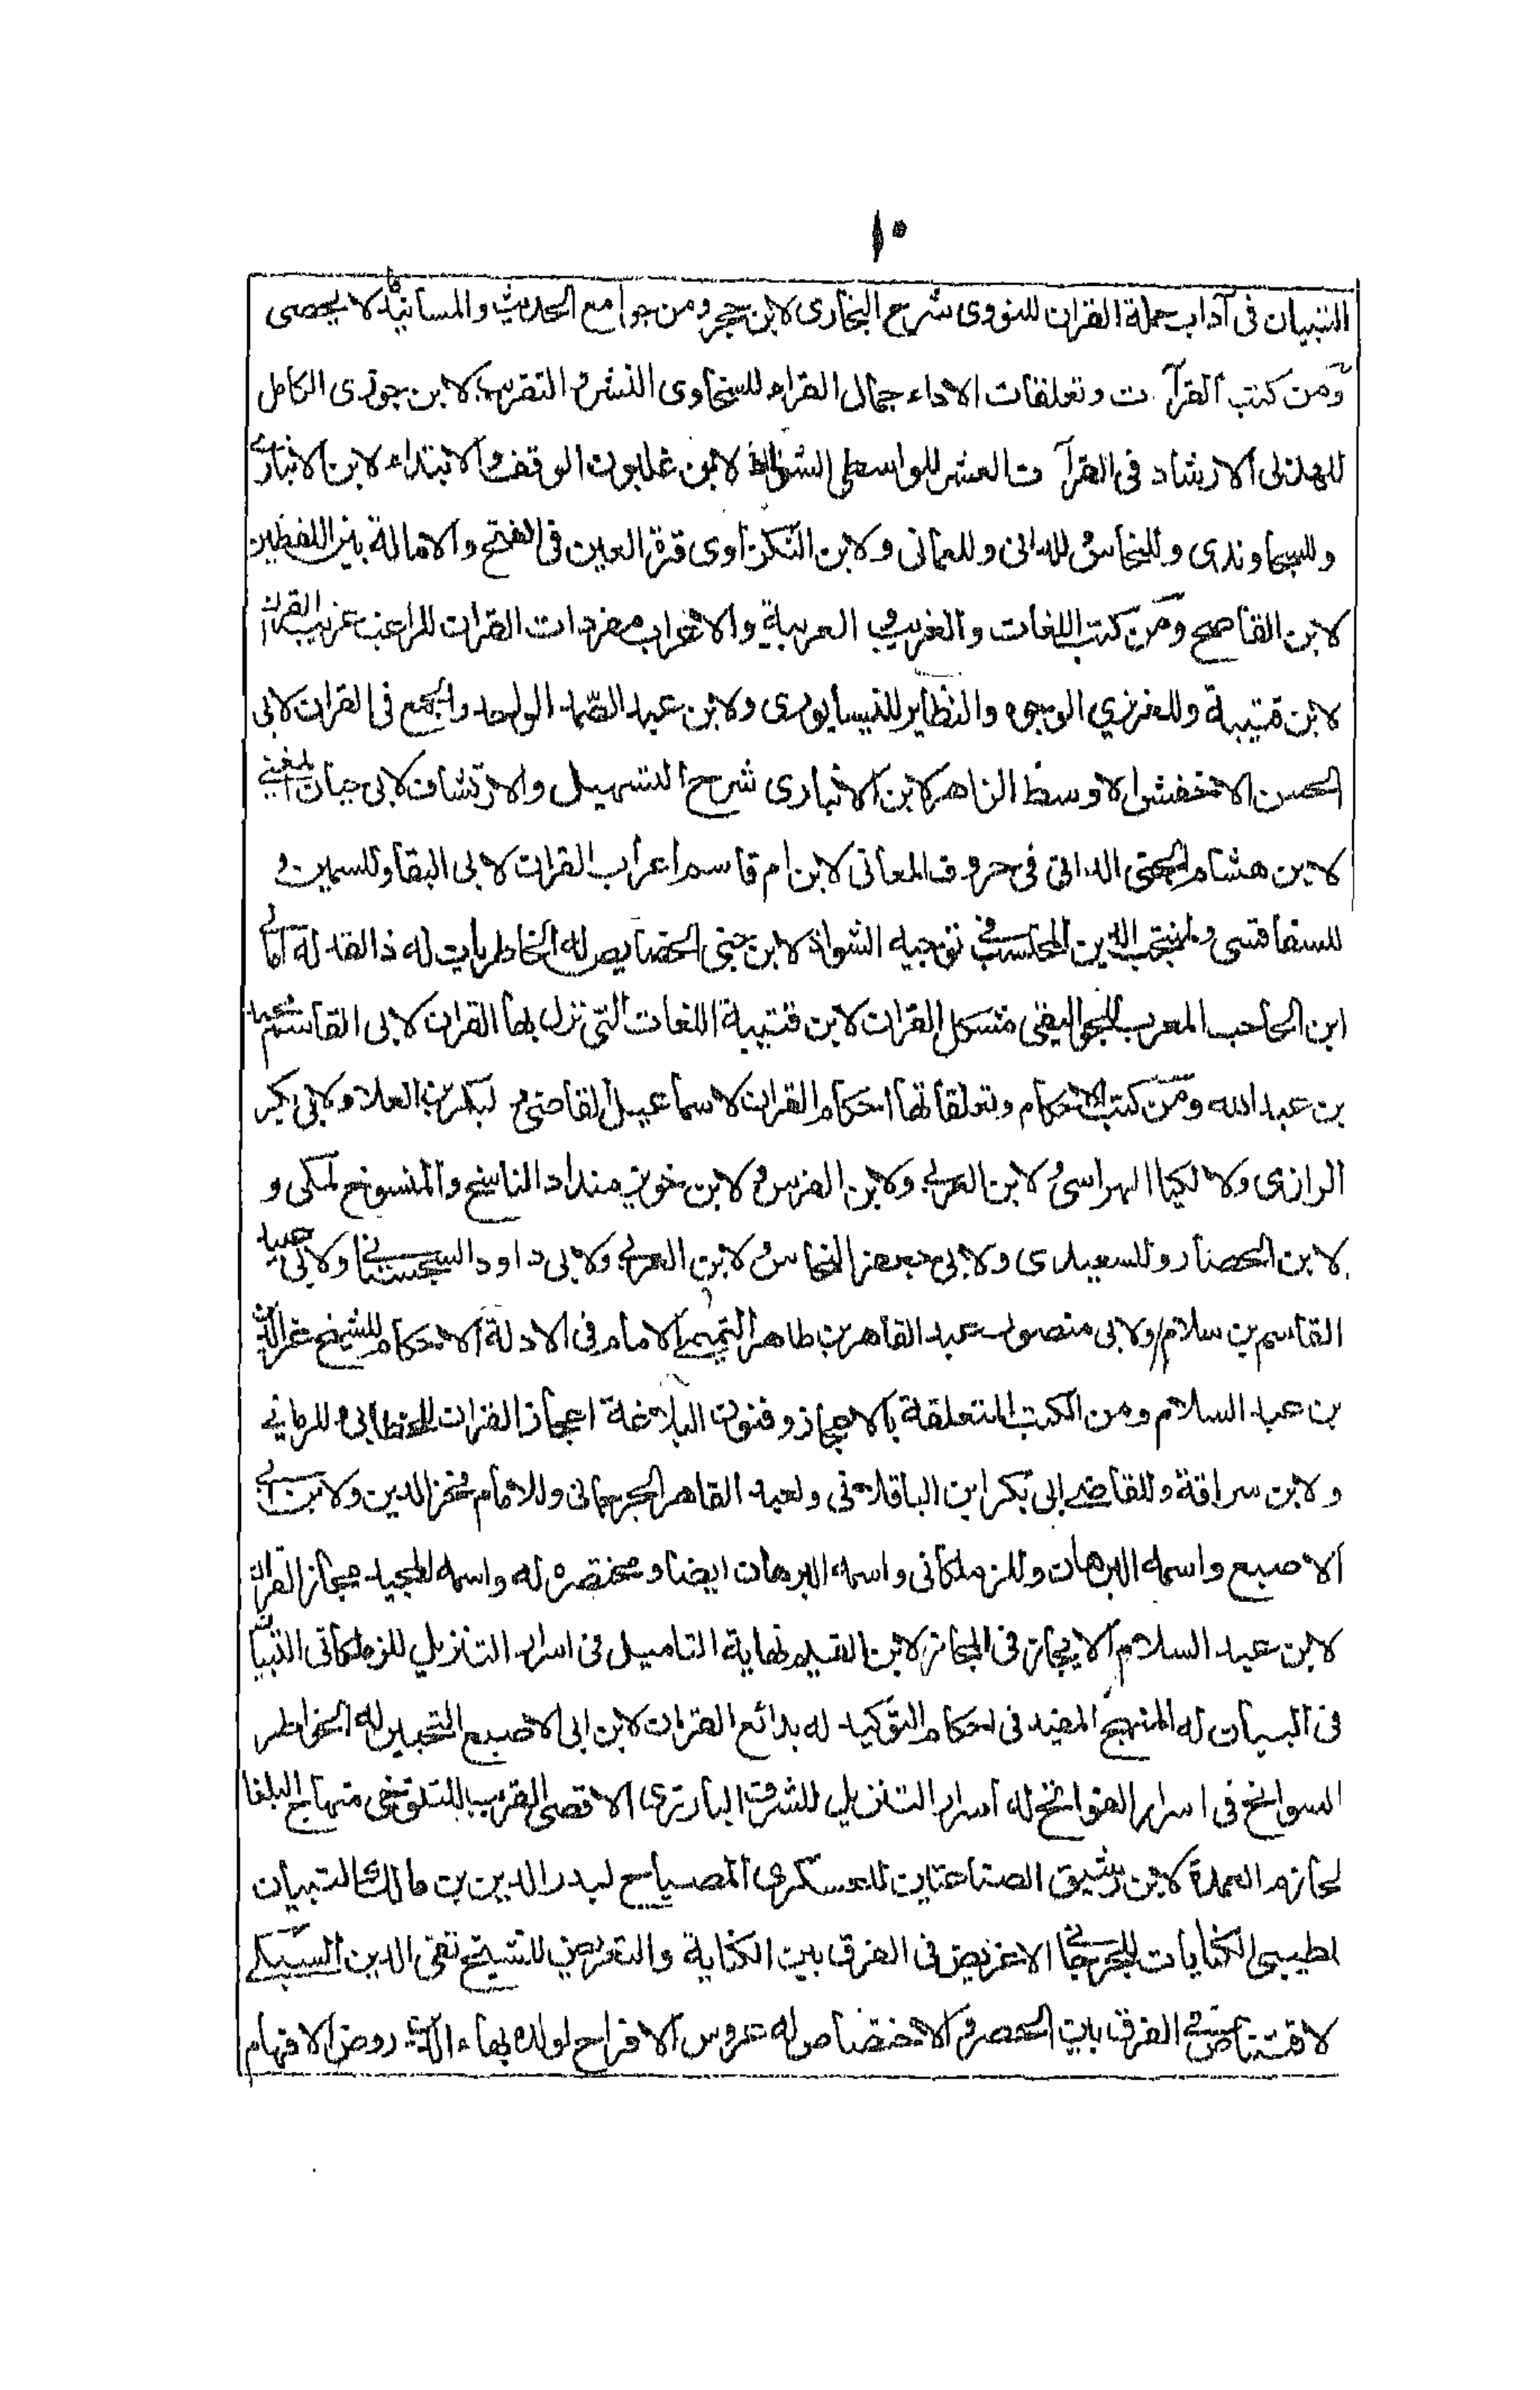 ١٠
التبيان فى آداب حملة القران للنووى شرح البخارى لابن حجر ومن جوامع الحديث والمسانيد ما لا يحصى
ومن كتب القرآ ت وتعلقات الاداء جمال القراء للسخاوى النشر و التقريب لابن جوزى الكامل
للهذلى الارشاد فى القرآ ت العشر للواسطى الشواذ لابن غلبون الوقف والابتداء لابن الانبارى
وللسجاوندى وللنحاس وللدانى وللعمانى ولابن النكزاوى قرة العين فى الفتح والامالة بين اللفظين
لابن القاصح ومن كتب اللغات والغريب و العربية والاعراب مفردات القران للراغب غريب القران
لابن قتيبة وللعزيزي الوجوه والنظاير للنيسابورى ولابن عبد الصمد الواحد والجمع فى القران لابى
الحسن الاخفش الاوسط الزاهر لابن الانبارى شرح التسهيل والارتشاف لابى حيان المغني
لابن هشام الجنى الدانى فى حروف المعانى لابن ام قاسم اعراب القران لابى البقا وللسمين و
للسفاقسى ولمنتجب الدين المحتسب في توجيه الشواذ لابن جنى الخصايص له الخاطريات له ذا القد له امالي
ابن الحاجب المعرب للجواليقى مشكل القران لابن قتيبة اللغات التى نزل بها القران لابى القاسم محمد
بن عبد الله ومن كتب الاحكام وتعلقاتها احكام القران لاسماعيل القاضى و لبكر بن العلا ولابى بكر
الرازى ولالكيا الهراسى و لابن العربي ولابن الفرس و لابن خويز منداد الناسخ والمنسوخ لمكى و
لابن الحصار وللسعيدى ولابى جعفر النحاس و لابن العربي ولابى داود السجستاني ولابى عبيد
القاسم بن سلام ولابى منصور عبد القاهر بن طاهر التميمي الامام فى الادلة الاحكام للشيخ عز الدين
بن عبد السلام ومن الكتب المتعلقة بالاعجاز وفنون البلاغة اعجاز القران للخطابى و للرماني
ولابن سراقة وللقاضي ابى بكر ابن الباقلانى ولعبد القاهر الجرجانى وللامام فخر الدين ولابن ابي
الاصبع واسمه البرهان وللزملكانى واسمه البرهان ايضا ومختصره له واسمه المجيد مجاز القران
لابن عبد السلام الايجاز فى المجاز لابن القيم نهاية التاميل فى اسرار التنزيل للزملكانى التبيان
فى البيان له المنهج المفيد فى احكام التوكيد له بدائع القران لابن ابى الاصبع التحبير له الخواطر
السوانح فى اسرار الفواتح له اسرار التنزيل للشرف البارزى الاقصى القريب للتنوخى منهاج البلغا
لحازم العمدة لابن رشيق الصناعتين للعسكرى المصباح لبدر الدين بن مالك التبيان
لطيبى الكنايات للجرجاني الاغريض فى الفرق بين الكناية والتعريض للشيخ تقى الدين السبكي
لاقتناص في الفرق بين الحصر و الاختصاص له عروس الافراح لولده بهاء الدين روض الافهام